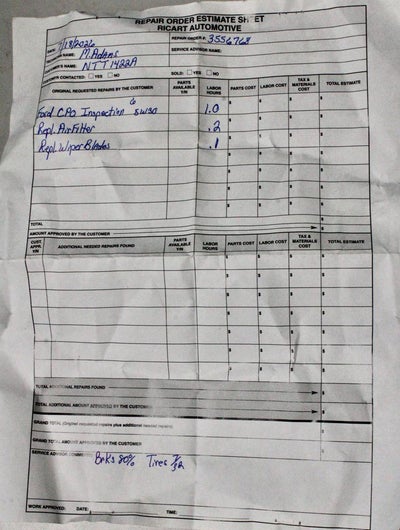 REPAIR ORDER ESTIMATE SHEET
RICART AUTOMOTIVE
DATE: /18/2026 REPAIR ORDER #: 3556768
NAME: M. Adams SERVICE ADVISOR NAME:
CUSTOMER'S NAME: NTT1422A
CUSTOMER CONTACTED: ☐ YES ☐ NO SOLD: ☐ YES ☐ NO
ORIGINAL REQUESTED REPAIRS BY THE CUSTOMER PARTS AVAILABLE Y/N LABOR HOURS PARTS COST LABOR COST TAX & MATERIALS COST TOTAL ESTIMATE
Ford CPO Inspection 1.0
Repl. Air Filter .2
Repl. Wiper Blades .1
TOTAL
AMOUNT APPROVED BY THE CUSTOMER
CUST. APPR. Y/N ADDITIONAL NEEDED REPAIRS FOUND PARTS AVAILABLE Y/N LABOR HOURS PARTS COST LABOR COST TAX & MATERIALS COST TOTAL ESTIMATE
TOTAL ADDITIONAL REPAIRS FOUND
TOTAL ADDITIONAL AMOUNT APPROVED BY THE CUSTOMER
GRAND TOTAL (Original requested repairs plus additional needed repairs)
GRAND TOTAL AMOUNT APPROVED BY THE CUSTOMER
SERVICE ADVISOR COMMENTS: Brks 80% Tires 7/32
WORK APPROVED: DATE: TIME: